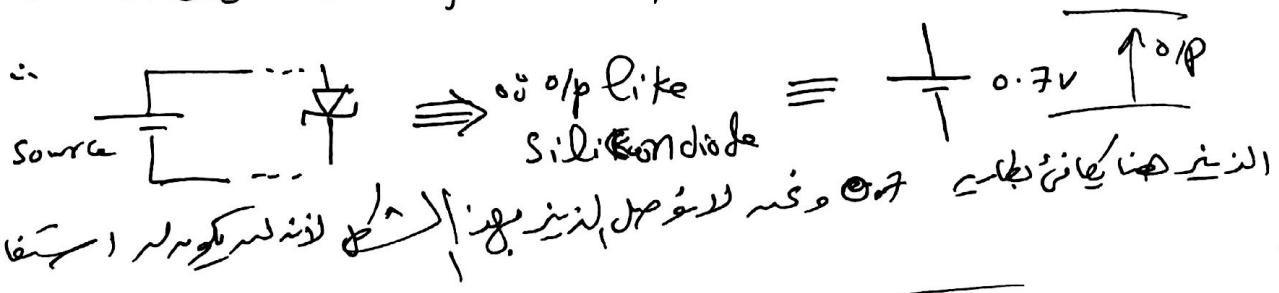 ∴
Source ⇒ ∴ o/p like silikon diode ≡ 0.7v o/p
الزينر هنا يكافئ بطاريه 0.7 ونحن لا نوصل الزينر بهذا الشكل لأنه لن يكون له استفا